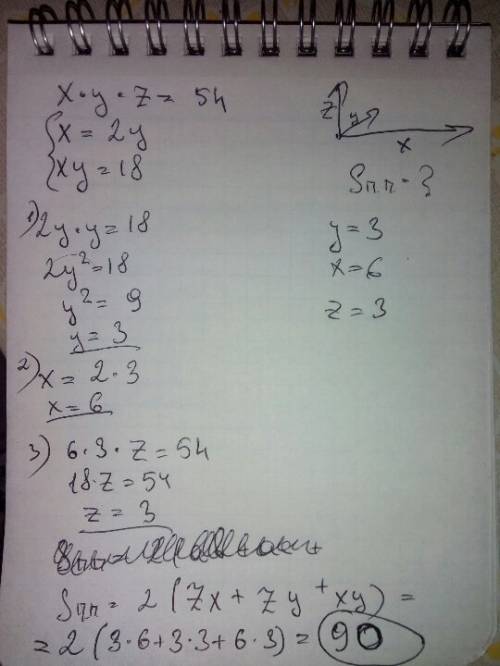 x · y · z = 54
x = 2y
xy = 18
z y x
Sпп - ?
1) 2y · y = 18
2y² = 18
y² = 9
y = 3
2) x = 2 · 3
x = 6
3) 6 · 3 · z = 54
18 · z = 54
z = 3
y = 3
x = 6
z = 3
Sпп = 2 (zx + zy + xy) =
= 2 (3 · 6 + 3 · 3 + 6 · 3) = 90